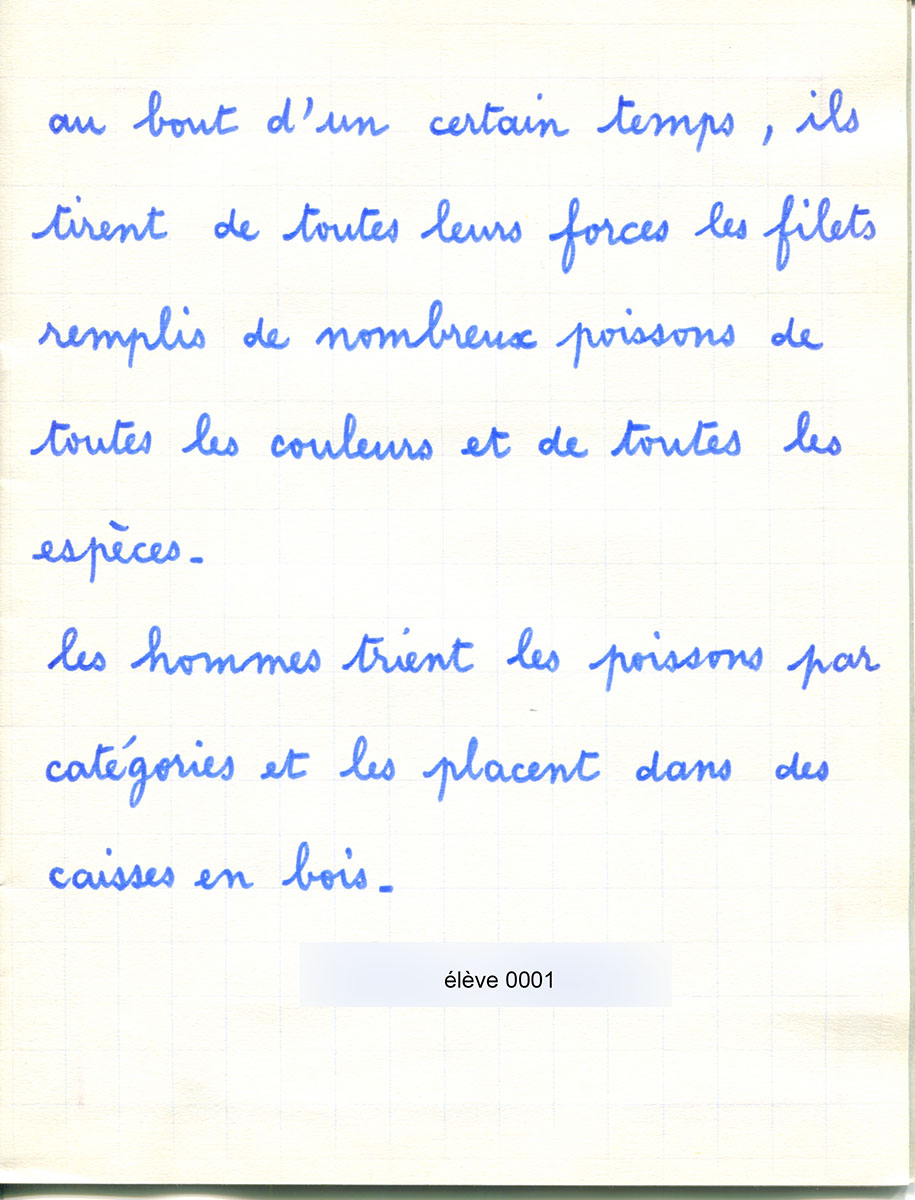 au bout d'un certain temps, ils
tirent de toutes leurs forces les filets
remplis de nombreux poissons de
toutes les couleurs et de toutes les
espèces.
les hommes trient les poissons par
catégories et les placent dans des
caisses en bois.
élève 0001